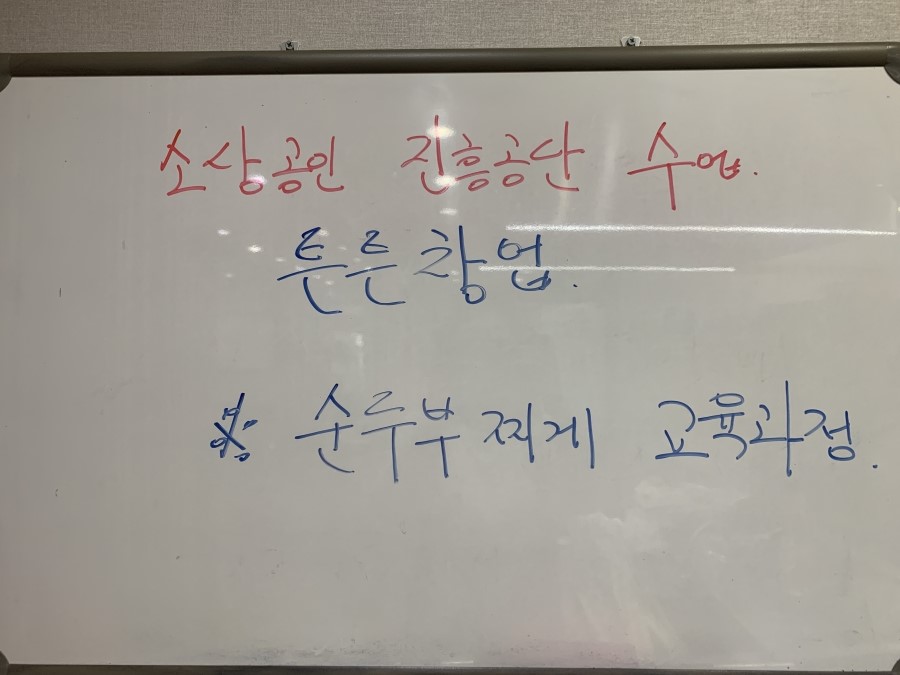 소상공인 진흥공단 수업.
튼튼창업.
※ 순두부찌게 교육과정.